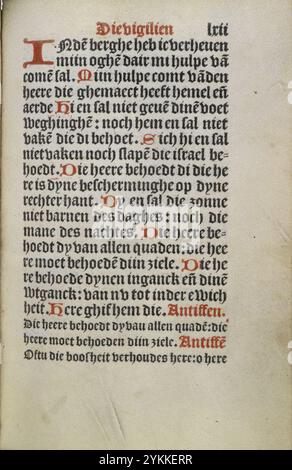 Die vigilien lxii
INdē berghe heb ic verheuen
mijn oghē dair mi hulpe vā
comē sal. Mijn hulpe comt vādē
heere die ghemaect heeft hemel eñ
aerde Hi en sal niet geuē dinē voet
weghinghē: noch hem en sal niet
vakē die di behoet. Sich hi en sal
niet vaken noch slapē die israel be-
hoedt. Die heere behoedt di die he
re is dyne bescherminghe op dyne
rechter hant. Dy en sal die zonne
niet barnen des daghes: noch die
mane des nachtes. Die heere be-
hoedt dy van allen quaden: die hee
re moet behoedē dijn ziele. Die he
re behoede dynen inganck eñ dinē
wtganck: van nv tot inder ewich
heit. Here ghif hem die. Antiffen.
Die heere behoedt dy vāv allen quadē: die
heere moet behoeden dijn ziele. Antiffē
Ofstu die boosheit verhoudes here: o here
alamy
Image ID: 2YKKERR
www.alamy.com